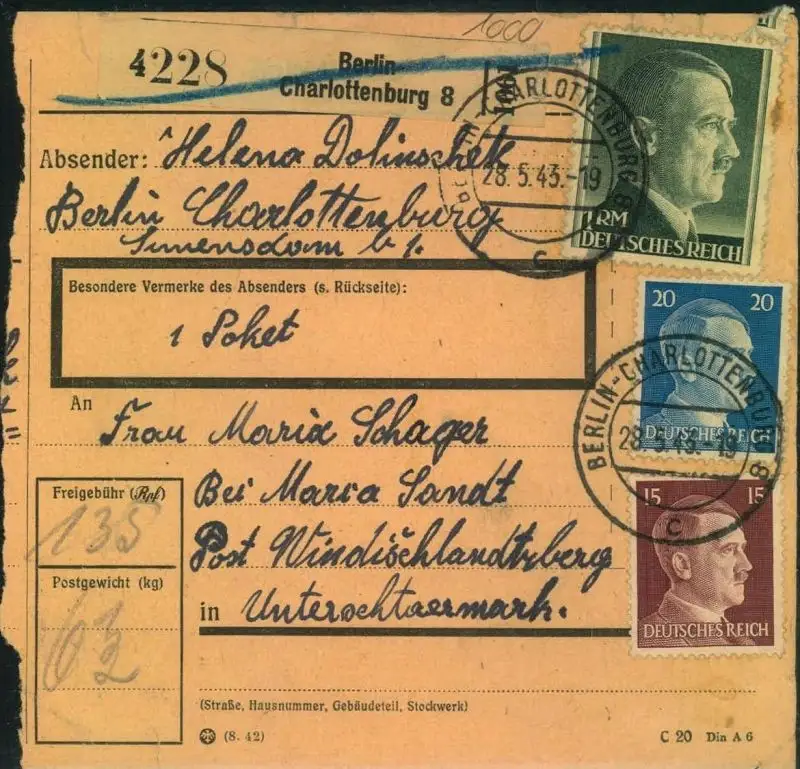 1000
4228
Berlin
Charlottenburg 8
Absender: Helena Dolinschek
Berlin Charlottenburg
BERLIN-CHARLOTTENBURG 8
28.5.43.-19
c
1 RM
DEUTSCHES REICH
Besondere Vermerke des Absenders (s. Rückseite):
1 Poket
20 20
DEUTSCHES REICH
BERLIN-CHARLOTTENBURG 8
28.5.43.-19
c
An
Frau Maria Schager
Freigebühr (Rpf)
135
Bei Maria Sandt
15 15
DEUTSCHES REICH
Post Windischlandtzberg
Postgewicht (kg)
in Unterschtaermark.
(Straße, Hausnummer, Gebäudeteil, Stockwerk)
(8. 42)
C 20 Din A 6